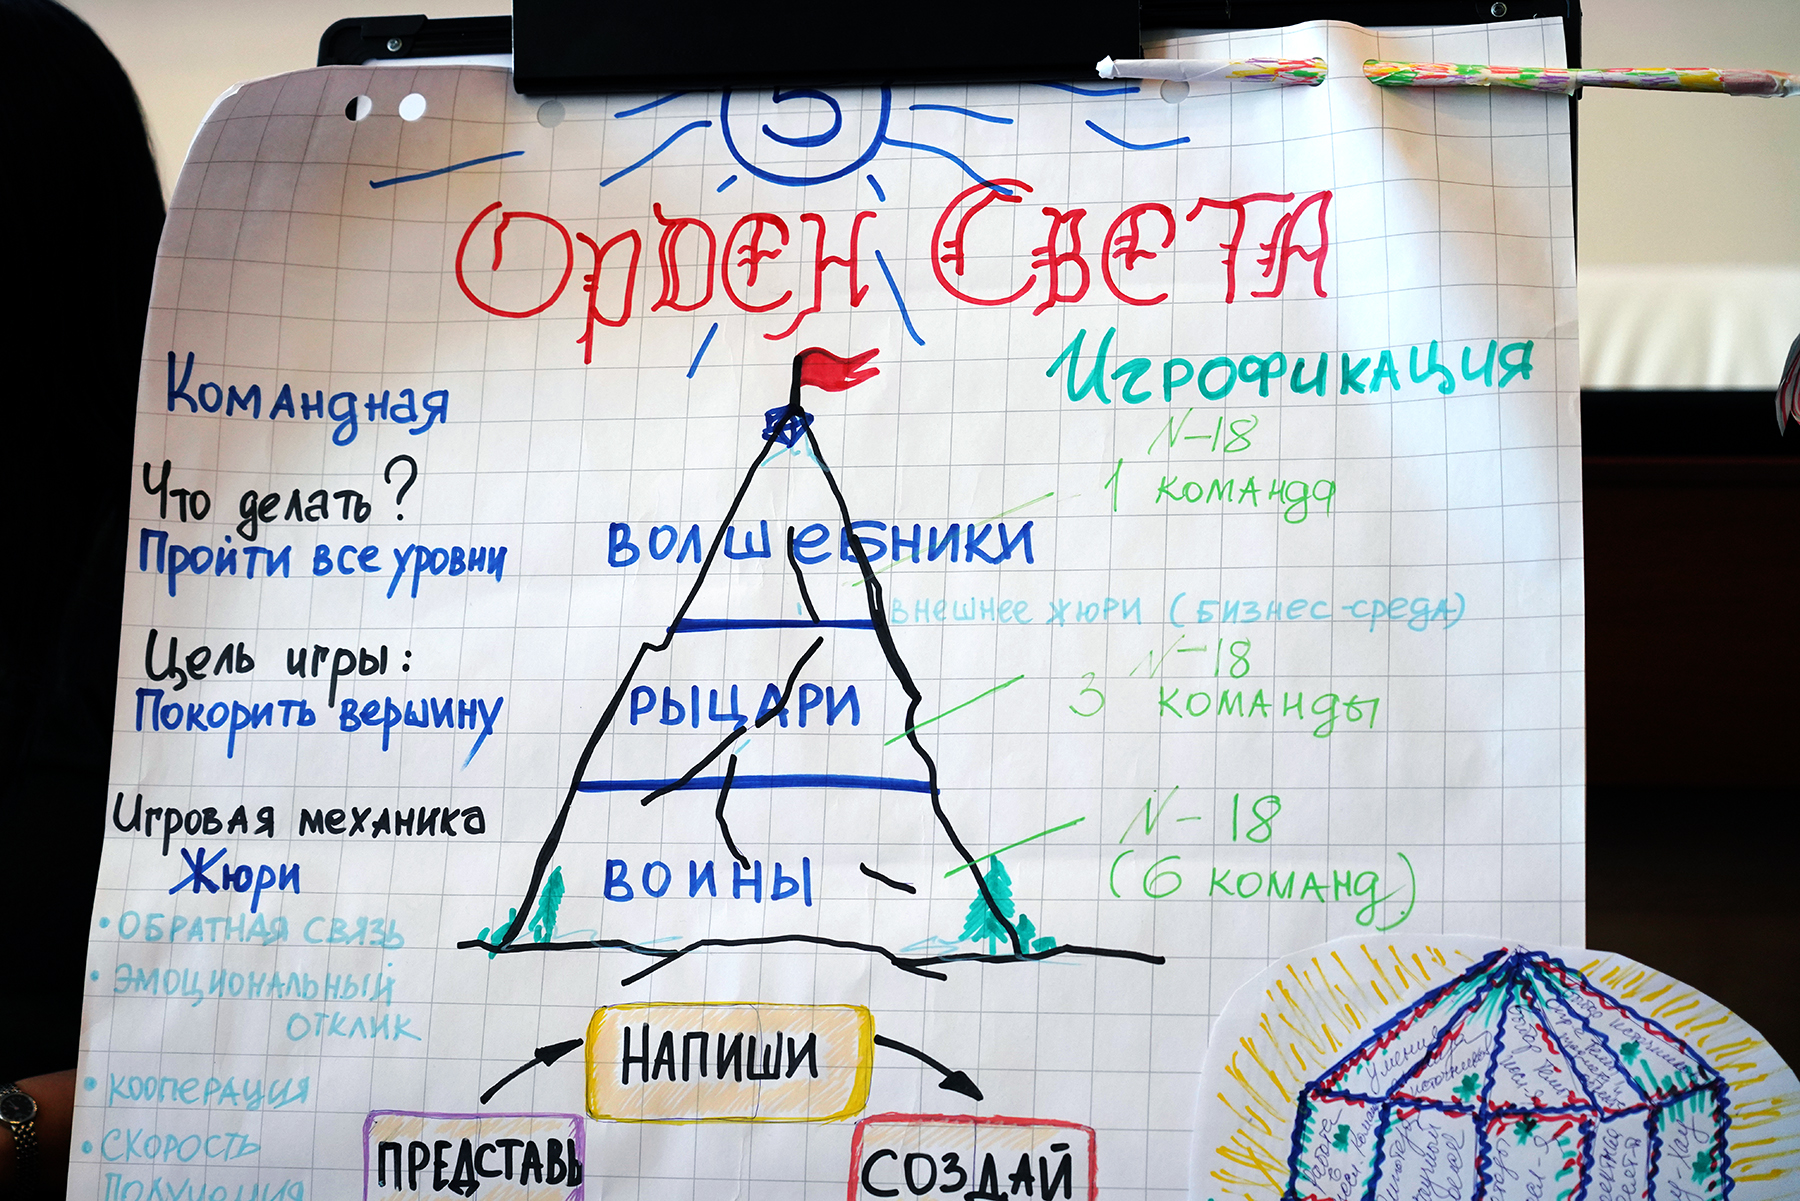 5
Орден Света
Командная
Игрофикация
N-18
1 команда
Что делать?
Пройти все уровни
Волшебники
внешнее жюри (бизнес-среда)
N-18
3 команды
Цель игры:
Покорить вершину
Рыцари
N-18
(6 команд)
Игровая механика
Жюри
Воины
• обратная связь
• эмоциональный
отклик
• кооперация
• скорость
получения
НАПИШИ
ПРЕДСТАВЬ
СОЗДАЙ